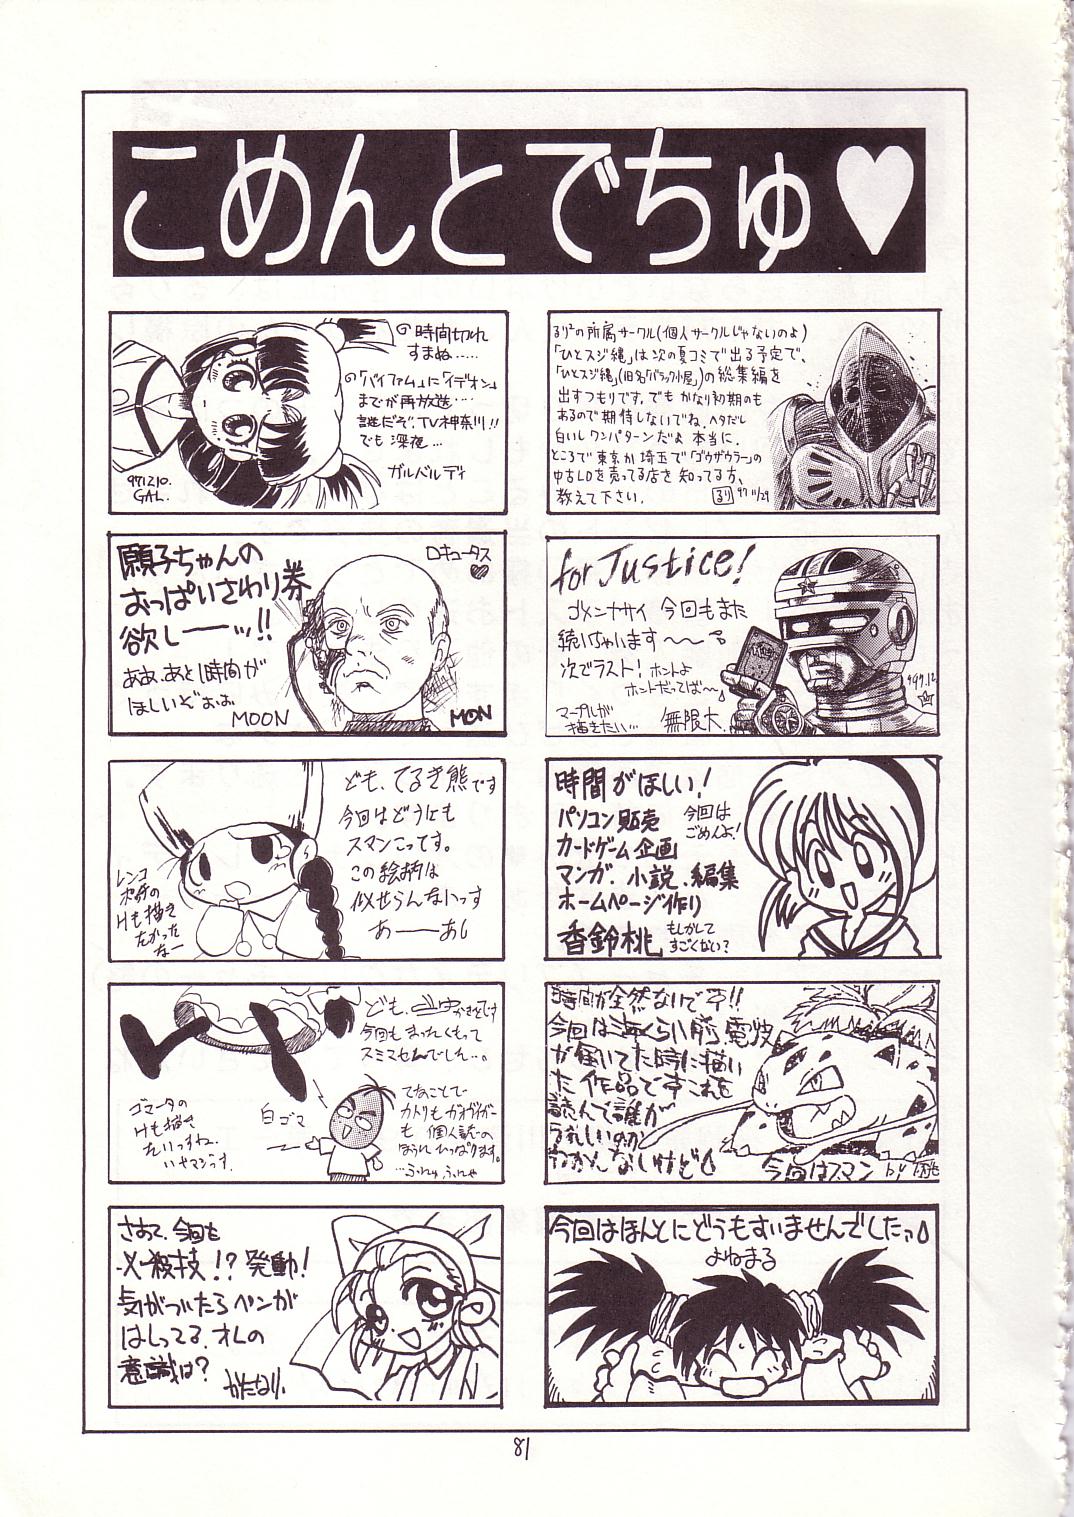 こめんとでちゅ♥
時間切れ
すまぬ……
「バイファム」に「イデオン」
までが再放送…
謎だぞ、TV神奈川!!
でも 深夜…
ガルベルディ
971210.
GAL.
の所属サークル(個人サークルじゃないのよ)
「ひとスジ縄」は次の夏コミで出る予定で、
「ひとスジ縄」(旧名「バラック小屋」)の総集編を
出すつもりです。でも かなり初期のも
あるので期待しないでね。ヘタだし
白いしワンパターンだよ 本当に。
ところで東京か埼玉で「ゴウザウラー」の
中古LDを売ってる店を 知ってる方、
教えて下さい。
るり 97 11/29
願子ちゃんの
おっぱいさわり券
欲しーーッ!!
ああ、あと1時間が
ほしいぞぉぉ
MOON
ロキュータス
♥
MOON
for Justice!
ゴメンナサイ 今回もまた
続いちゃいます〜〜
次でラスト! ホントよ
ホントだってば〜
マープルが
描きたい…
無限大.
ども、てるき熊です
今回はどうにも
スマンこってす。
この絵柄は
似せらんないっす
あーーあ
レンコ
のHも描き
たかった
なー
時間がほしい!
パソコン販売
カードゲーム企画
マンガ、小説、編集
ホームページ作り
香鈴桃
今回は
ごめんよ!
もしかして
すごくない?
ども、
今回も まったくもって
スミマセんでした…。
ゴマータの
Hも描き
たいっすね。
白ゴマ
てなことで
も 個人誌の
ほうに ひっぱります。
…ふにゅ ふにゃ
時間が全然ないで
今回は 前、電波
が届いてた時に描い
た作品で これを
読んで誰が
うれしいのか
わかんないけど
今回はスマン
by
さあて、今回も
必殺技!? 発動!
気がついたらペンが
はしってる。オレの
意識は?
かたなり.
今回はほんとにどうもすいませんでしたっ
よねまる
81